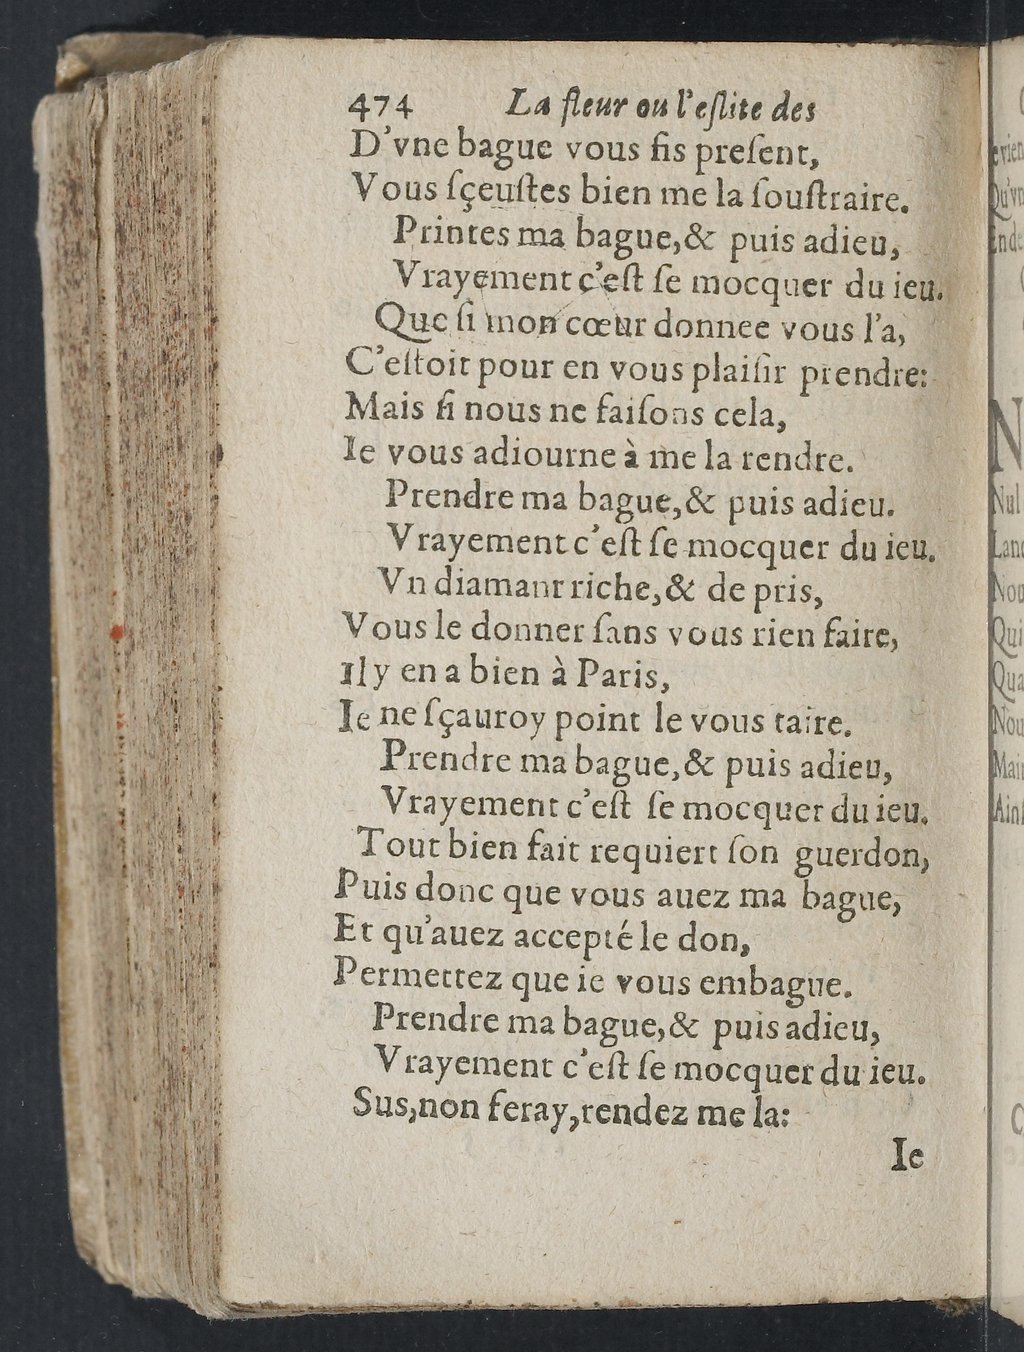 474 La fleur ou l'eſlite des
D'vne bague vous fis preſent,
Vous ſçeuſtes bien me la ſouſtraire.
Printes ma bague,& puis adieu,
Vrayement c'eſt ſe mocquer du ieu.
Que ſi mon cœur donnee vous l'a,
C'eſtoit pour en vous plaiſir prendre:
Mais ſi nous ne faiſons cela,
Ie vous adiourne à me la rendre.
Prendre ma bague,& puis adieu.
Vrayement c'eſt ſe mocquer du ieu.
Vn diamant riche,& de pris,
Vous le donner ſans vous rien faire,
Il y en a bien à Paris,
Ie ne ſçauroy point le vous taire.
Prendre ma bague,& puis adieu,
Vrayement c'eſt ſe mocquer du ieu.
Tout bien fait requiert ſon guerdon,
Puis donc que vous auez ma bague,
Et qu'auez accepté le don,
Permettez que ie vous embague.
Prendre ma bague,& puis adieu,
Vrayement c'eſt ſe mocquer du ieu.
Sus,non feray,rendez me la:
Ie